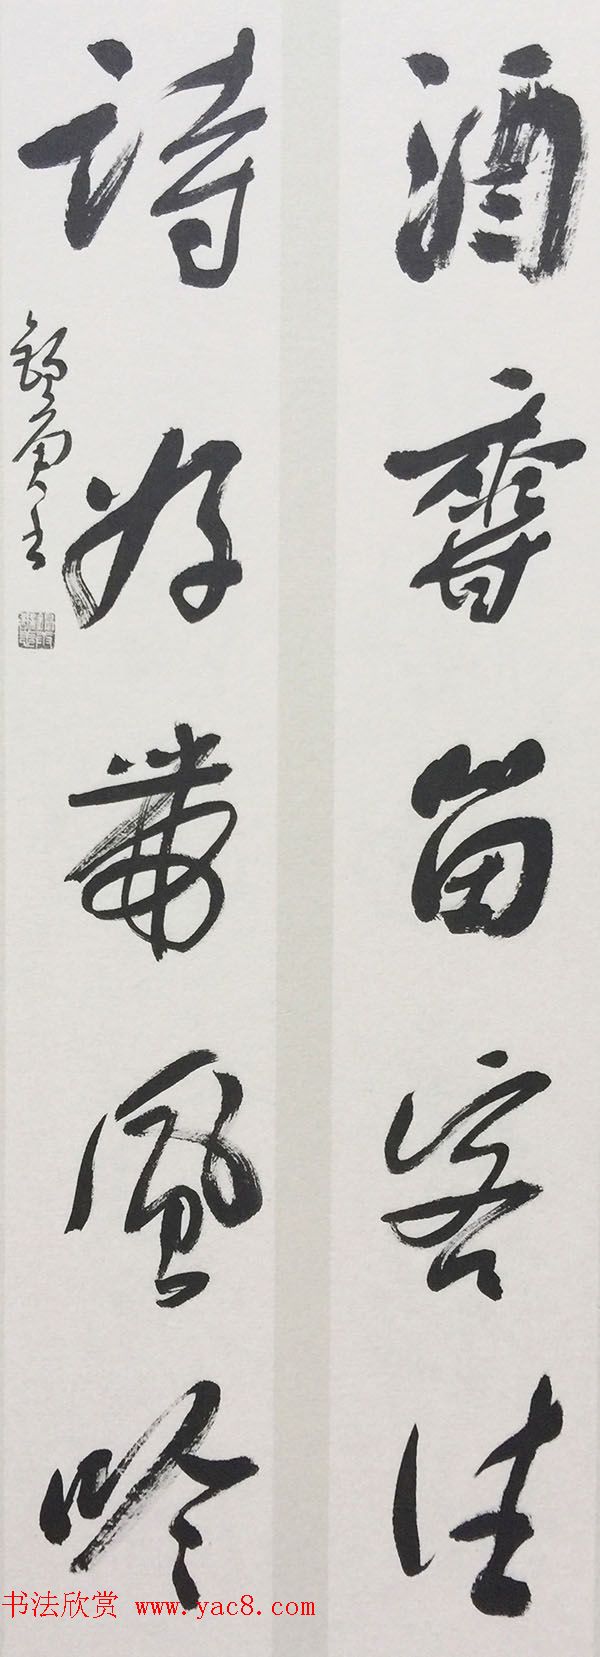 酒香留客住
詩好帶風吟
书法欣赏 www.yac8.com